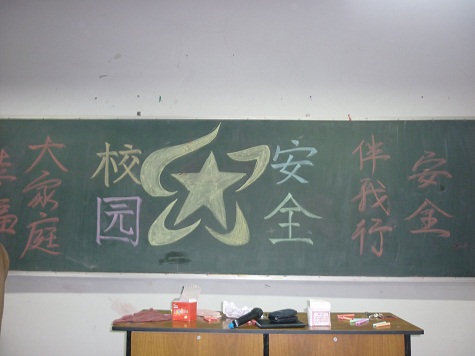 校园
安全
安全
伴我行
大家庭